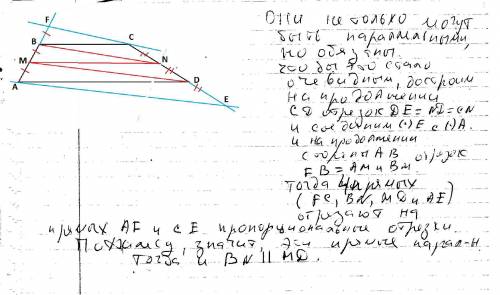 F
B
C
M
N
A
D
E
Они не только могут
быть параллельными,
но обязаны.
чтобы это стало
очевидным, достроим
на продолжении
CD отрезок DE = ND = CN
и соединим (·) E с (·) A.
и на продолжении
стороны AB отрезок
FB = AM и BM
Тогда 4 прямых
(FC, BN, MD и AE)
отрезают на
прямых AF и CE пропорциональные отрезки.
значит, эти прямые парал-н.
Тогда и BN || MD.